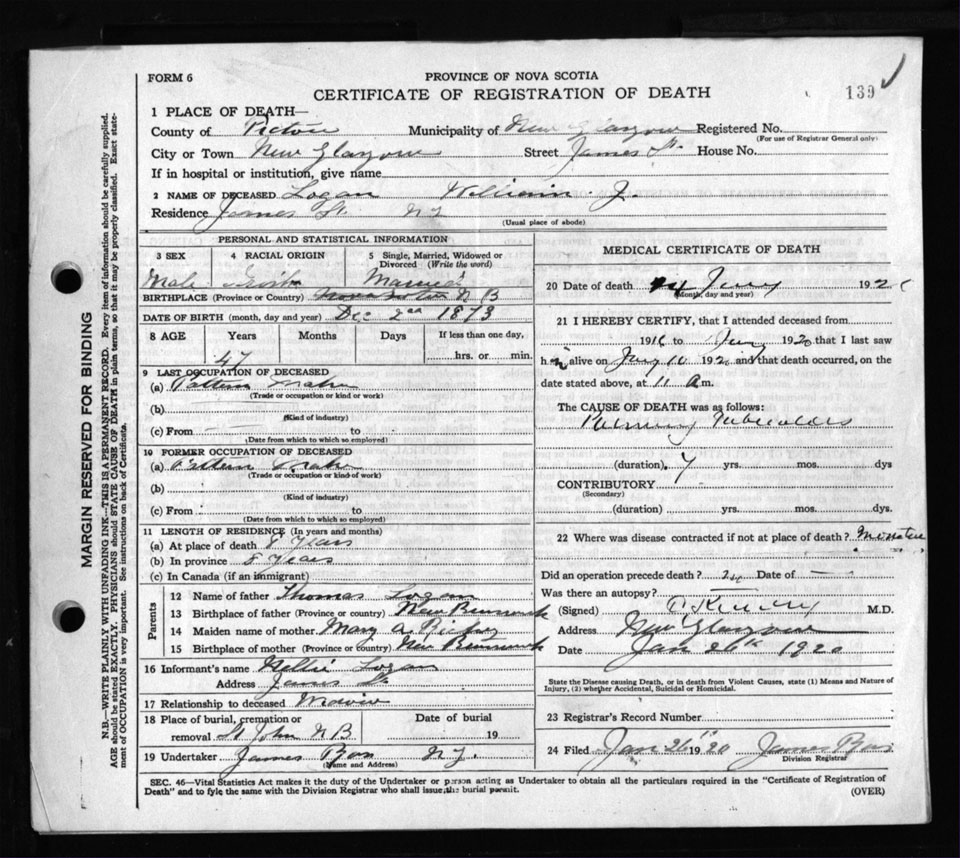 FORM 6
PROVINCE OF NOVA SCOTIA
CERTIFICATE OF REGISTRATION OF DEATH
139
1 PLACE OF DEATH—
County of Pictou Municipality of New Glasgow Registered No.
(For use of Registrar General only)
City or Town New Glasgow Street James St. House No.
If in hospital or institution, give name
2 NAME OF DECEASED Logan William J.
Residence James St. N G
(Usual place of abode)
PERSONAL AND STATISTICAL INFORMATION
3 SEX 4 RACIAL ORIGIN 5 Single, Married, Widowed or Divorced (Write the word)
Male Married
BIRTHPLACE (Province or Country) Nova Scotia N B
DATE OF BIRTH (month, day and year) Dec 2nd 1873
8 AGE Years Months Days If less than one day,
47 hrs. or min.
9 LAST OCCUPATION OF DECEASED
(a) Pattern Maker
(Trade or occupation or kind or work)
(b)
(Kind of industry)
(c) From to
(Date from which to which so employed)
10 FORMER OCCUPATION OF DECEASED
(a) Pattern Maker
(Trade or occupation or kind or work)
(b)
(Kind of industry)
(c) From to
(Date from which to which so employed)
11 LENGTH OF RESIDENCE (In years and months)
(a) At place of death 8 Years
(b) In province 8 Years
(c) In Canada (if an immigrant)
Parents
12 Name of father Thomas Logan
13 Birthplace of father (Province or country) New Brunswick
14 Maiden name of mother Mary A.
15 Birthplace of mother (Province or country) New Brunswick
16 Informant's name Nellie Logan
Address James St
17 Relationship to deceased Widow
18 Place of burial, cremation or removal St John N B Date of burial 19
19 Undertaker James N G.
(Name and Address)
MEDICAL CERTIFICATE OF DEATH
20 Date of death 192
(Month, day and year)
21 I HEREBY CERTIFY, that I attended deceased from
191 to 1920 that I last saw
h alive on 10 192 and that death occurred, on the
date stated above, at 11 a m.
The CAUSE OF DEATH was as follows:
Pulmonary Tuberculosis
(duration) 7 yrs. mos. dys
CONTRIBUTORY
(Secondary)
(duration) yrs. mos. dys.
22 Where was disease contracted if not at place of death?
Did an operation precede death? no Date of
Was there an autopsy?
(Signed) M.D.
Address New Glasgow
Date Jan 26th 1920
State the Disease causing Death, or in death from Violent Causes, state (1) Means and Nature of
Injury, (2) whether Accidental, Suicidal or Homicidal.
23 Registrar's Record Number
24 Filed Jan 26 1920 James
Division Registrar
SEC. 46—Vital Statistics Act makes it the duty of the Undertaker or person acting as Undertaker to obtain all the particulars required in the "Certificate of Registration of
Death" and to fyle the same with the Division Registrar who shall issue the burial permit. (OVER)
MARGIN RESERVED FOR BINDING
N.B.—WRITE PLAINLY WITH UNFADING INK—THIS IS A PERMANENT RECORD. Every item of information should be carefully supplied.
AGE should be stated EXACTLY. PHYSICIANS should STATE CAUSE OF DEATH in plain terms, so that it may be properly classified. Exact state-
ment of OCCUPATION is very important. See instructions on back of Certificate.